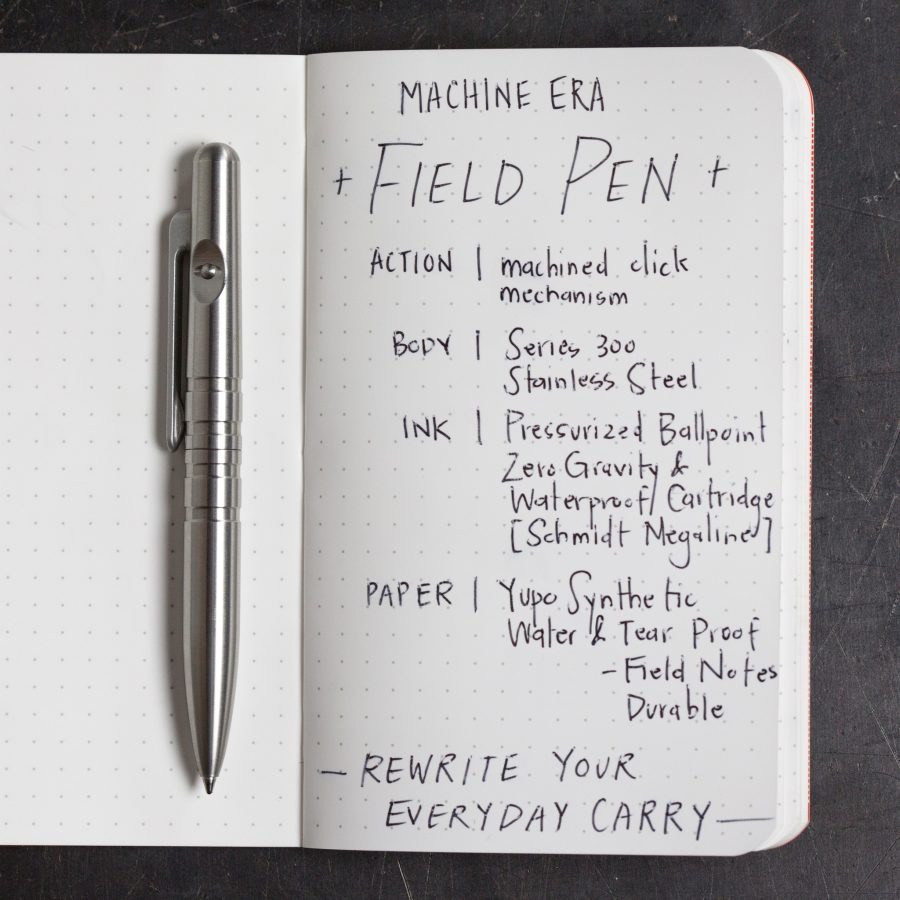 MACHINE ERA
+ FIELD PEN +
ACTION | machined click
mechanism
BODY | Series 300
Stainless Steel
INK | Pressurized Ballpoint
Zero Gravity &
Waterproof Cartridge
[Schmidt Megaline]
PAPER | Yupo Synthetic
Water & Tear Proof
- Field Notes
Durable
- REWRITE YOUR
EVERYDAY CARRY -